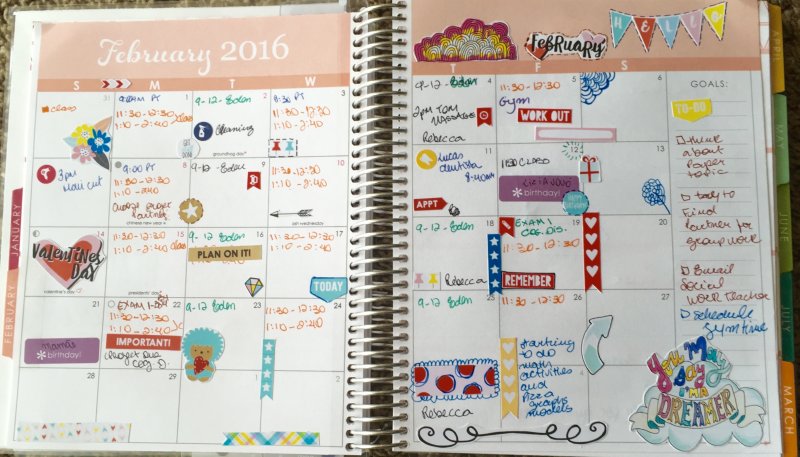 February 2016
S M T W
31
class
1
9:00AM PT
11:30-12:30
1:10-2:40
GET IT DONE!
2
9-12-Eden
Cleaning
groundhog day
3
8:30 PT
11:30-12:30
1:10-2:40
7
3pm
Hair cut
8
9:00 PT
11:30-12:30
1:10-2:40
chinese new year
9
9-12-Eden
10
11:30-12:30
1:10-2:40
ash wednesday
14
VALENTINES
DAY
valentine's day
15
11:30-12:30
1:10-2:40
class
presidents' day
16
9-12 Eden
PLAN ON IT!
17
11:30-12:30
1:10-2:40
TODAY
21
Mama's
birthday!
22
EXAM 1-
11:30-12:30
1:10-2:40
IMPORTANT!
Project Due
23
9-12-Eden
24
11:30-12:30
1:10-2:40
28
29
1
2
FEBRUARY
HELLO
T F S
4
9-12-Eden
2pm TOM
MASSAGE
Rebecca
5
11:30-12:30
Gym
WORK OUT
6
11
Lucas
dentista
8:40am
APPT
12
1130 CLASS
birthday!
HAPPY BIRTHDAY
13
18
9-12 Eden
Rebecca
19
EXAM 1
COG. DIS.
11:30-12:30
REMEMBER
20
25
9-12-Eden
Rebecca
26
11:30-12:30
27
starting
to do
math
activities
and
Pizza
graphs
models
4
GOALS:
TO-DO
think
about
Paper
topic
Talk to
Find
Partner for
group work
Email
Social
Work Teacher
Schedule
Gym time
You May
Say
I'm a
DREAMER
JANUARY
FEBRUARY
APRIL
MAY
JUNE
JULY
MARCH